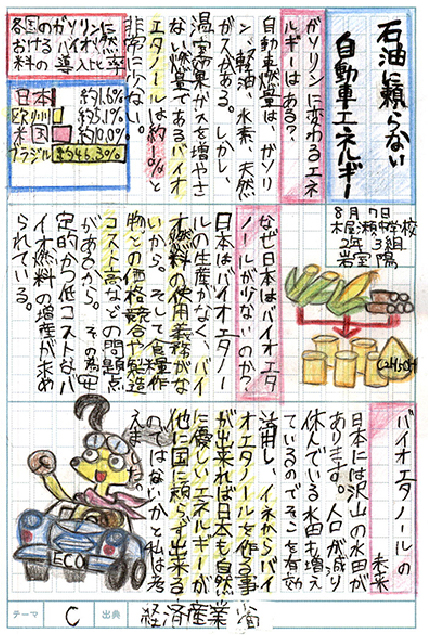 石油に頼らない
自動車エネルギー
8月7日
木屋瀬中学校
2年3組
岩室陽
ガソリンに変わるエネ
ルギーはある?
自動車燃量は、ガソリ
ン、軽油、水素、天然
ガスがある。しかし、
温室効果ガスを増やさ
ない燃量であるバイオ
エタノールは約1%と
非常に少ない。
各国のガソリンに
おけるバイオエ
日本 約1.6%
欧州 約5.1%
米国 約10.0%
ブラジル 約46.30%
なぜ日本はバイオエタ
ノールが少ないのか?
日本はバイオエタノー
ルの生産がなく、バイ
オ燃料の使用義務がな
いから。そして食糧作
物との価格競合や製造
コスト高などの問題点
があるから。その為安
定的かつ低コストなバ
イオ燃料の増産が求め
られている。
C2H5OH
バイオエタノールの
未来
日本には沢山の水田が
あります。人口が減り
休んでいる水田も増え
ているのでそこを有効
活用し、イネからバイ
オエタノールを作る事
が出来れば日本も自然
に優しいエネルギーが
他に国に頼らず出来る
のではないかと私は考
えました。
ECO
テーマ C 出典 経済産業省